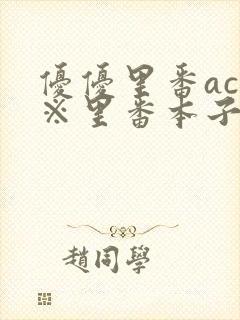 優優里番ac
※里番本子
趙同學